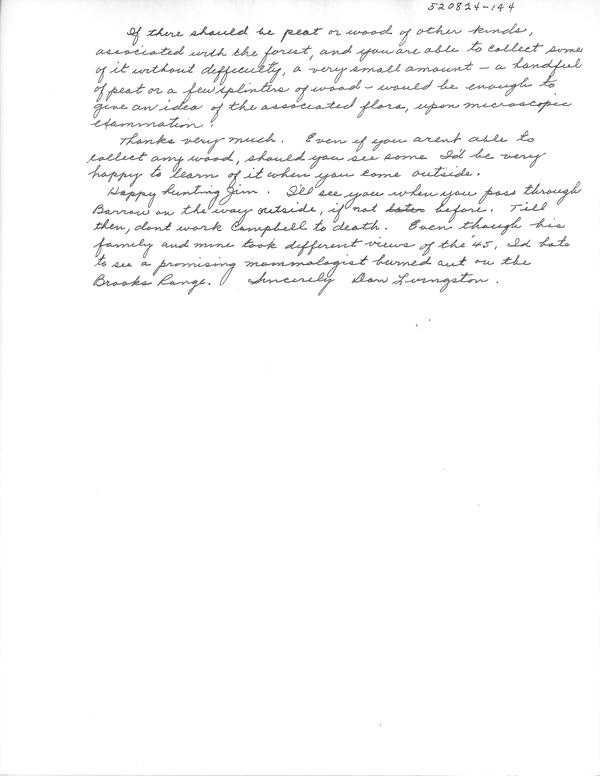 520824-144
If there should be peat or wood of other kinds,
associated with the forest, and you are able to collect some
of it without difficulty, a very small amount - a handful
of peat or a few splinters of wood - would be enough to
give an idea of the associated flora, upon microscopic
examination.
Thanks very much. Even if you arent able to
collect any wood, should you see some I'd be very
happy to learn of it when you come outside.
Happy hunting Jim. I'll see you when you pass through
Barrow on the way outside, if not later before. Till
then, dont work Campbell to death. Even though his
family and mine took different views of the '45, I'd hate
to see a promising mammalogist burned out on the
Brooks Range. Sincerely Dan Livingston.